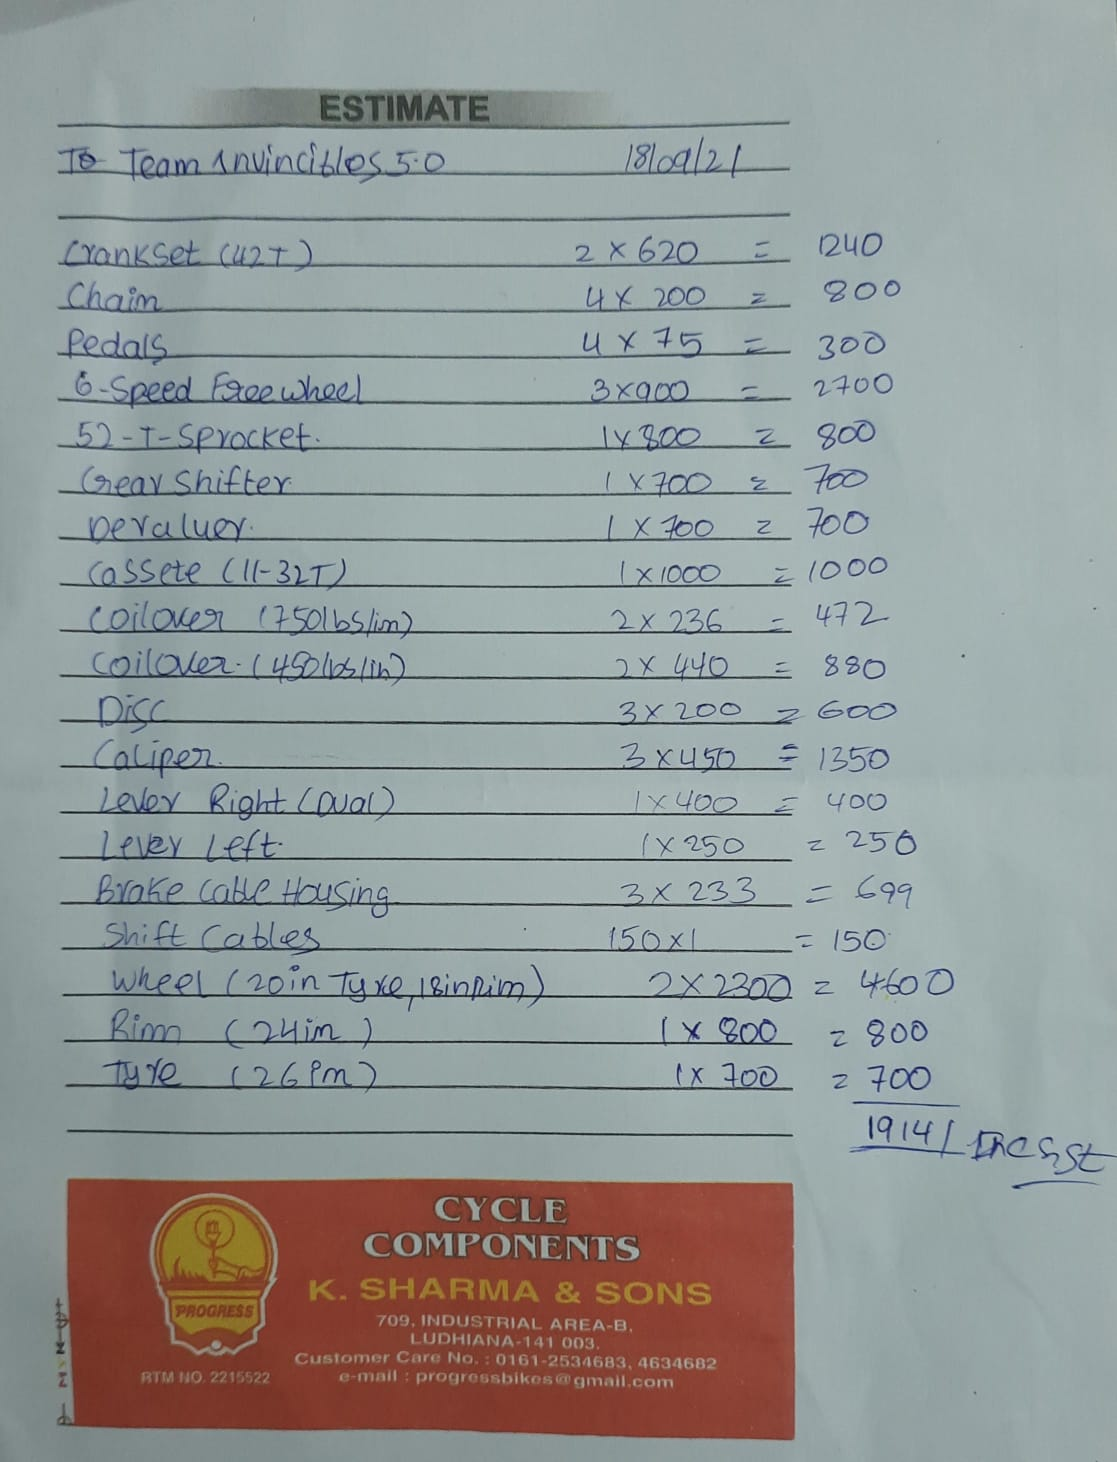 ESTIMATE
To Team Invincibles 5.0 18/09/21
Crankset (42T) 2 X 620 = 1240
Chain 4 X 200 = 800
Pedals 4 X 75 = 300
6-Speed Freewheel 3X900 = 2700
52-T-Sprocket. 1X800 = 800
Gear Shifter 1 X 700 = 700
Devaluer. 1 X 700 = 700
Cassete (11-32T) 1X1000 = 1000
Coilover (750lbs/in) 2X 236 = 472
Coilover. (450lbs/in) 2X 440 = 880
Disc 3X 200 = 600
Caliper. 3X450 = 1350
Lever Right (Dual) 1X400 = 400
Lever Left. 1X250 = 250
Brake Cable Housing 3X 233 = 699
Shift Cables 150X1 = 150
Wheel (20in Tyre, 18inRim) 2X2300 = 4600
Rim (24in) 1X 800 = 800
Tyre (26in) 1X 700 = 700
1914/
PROGRESS
RTM NO. 2215522
CYCLE
COMPONENTS
K. SHARMA & SONS
709, INDUSTRIAL AREA-B,
LUDHIANA-141 003.
Customer Care No. : 0161-2534683, 4634682
e-mail : progressbikes@gmail.com